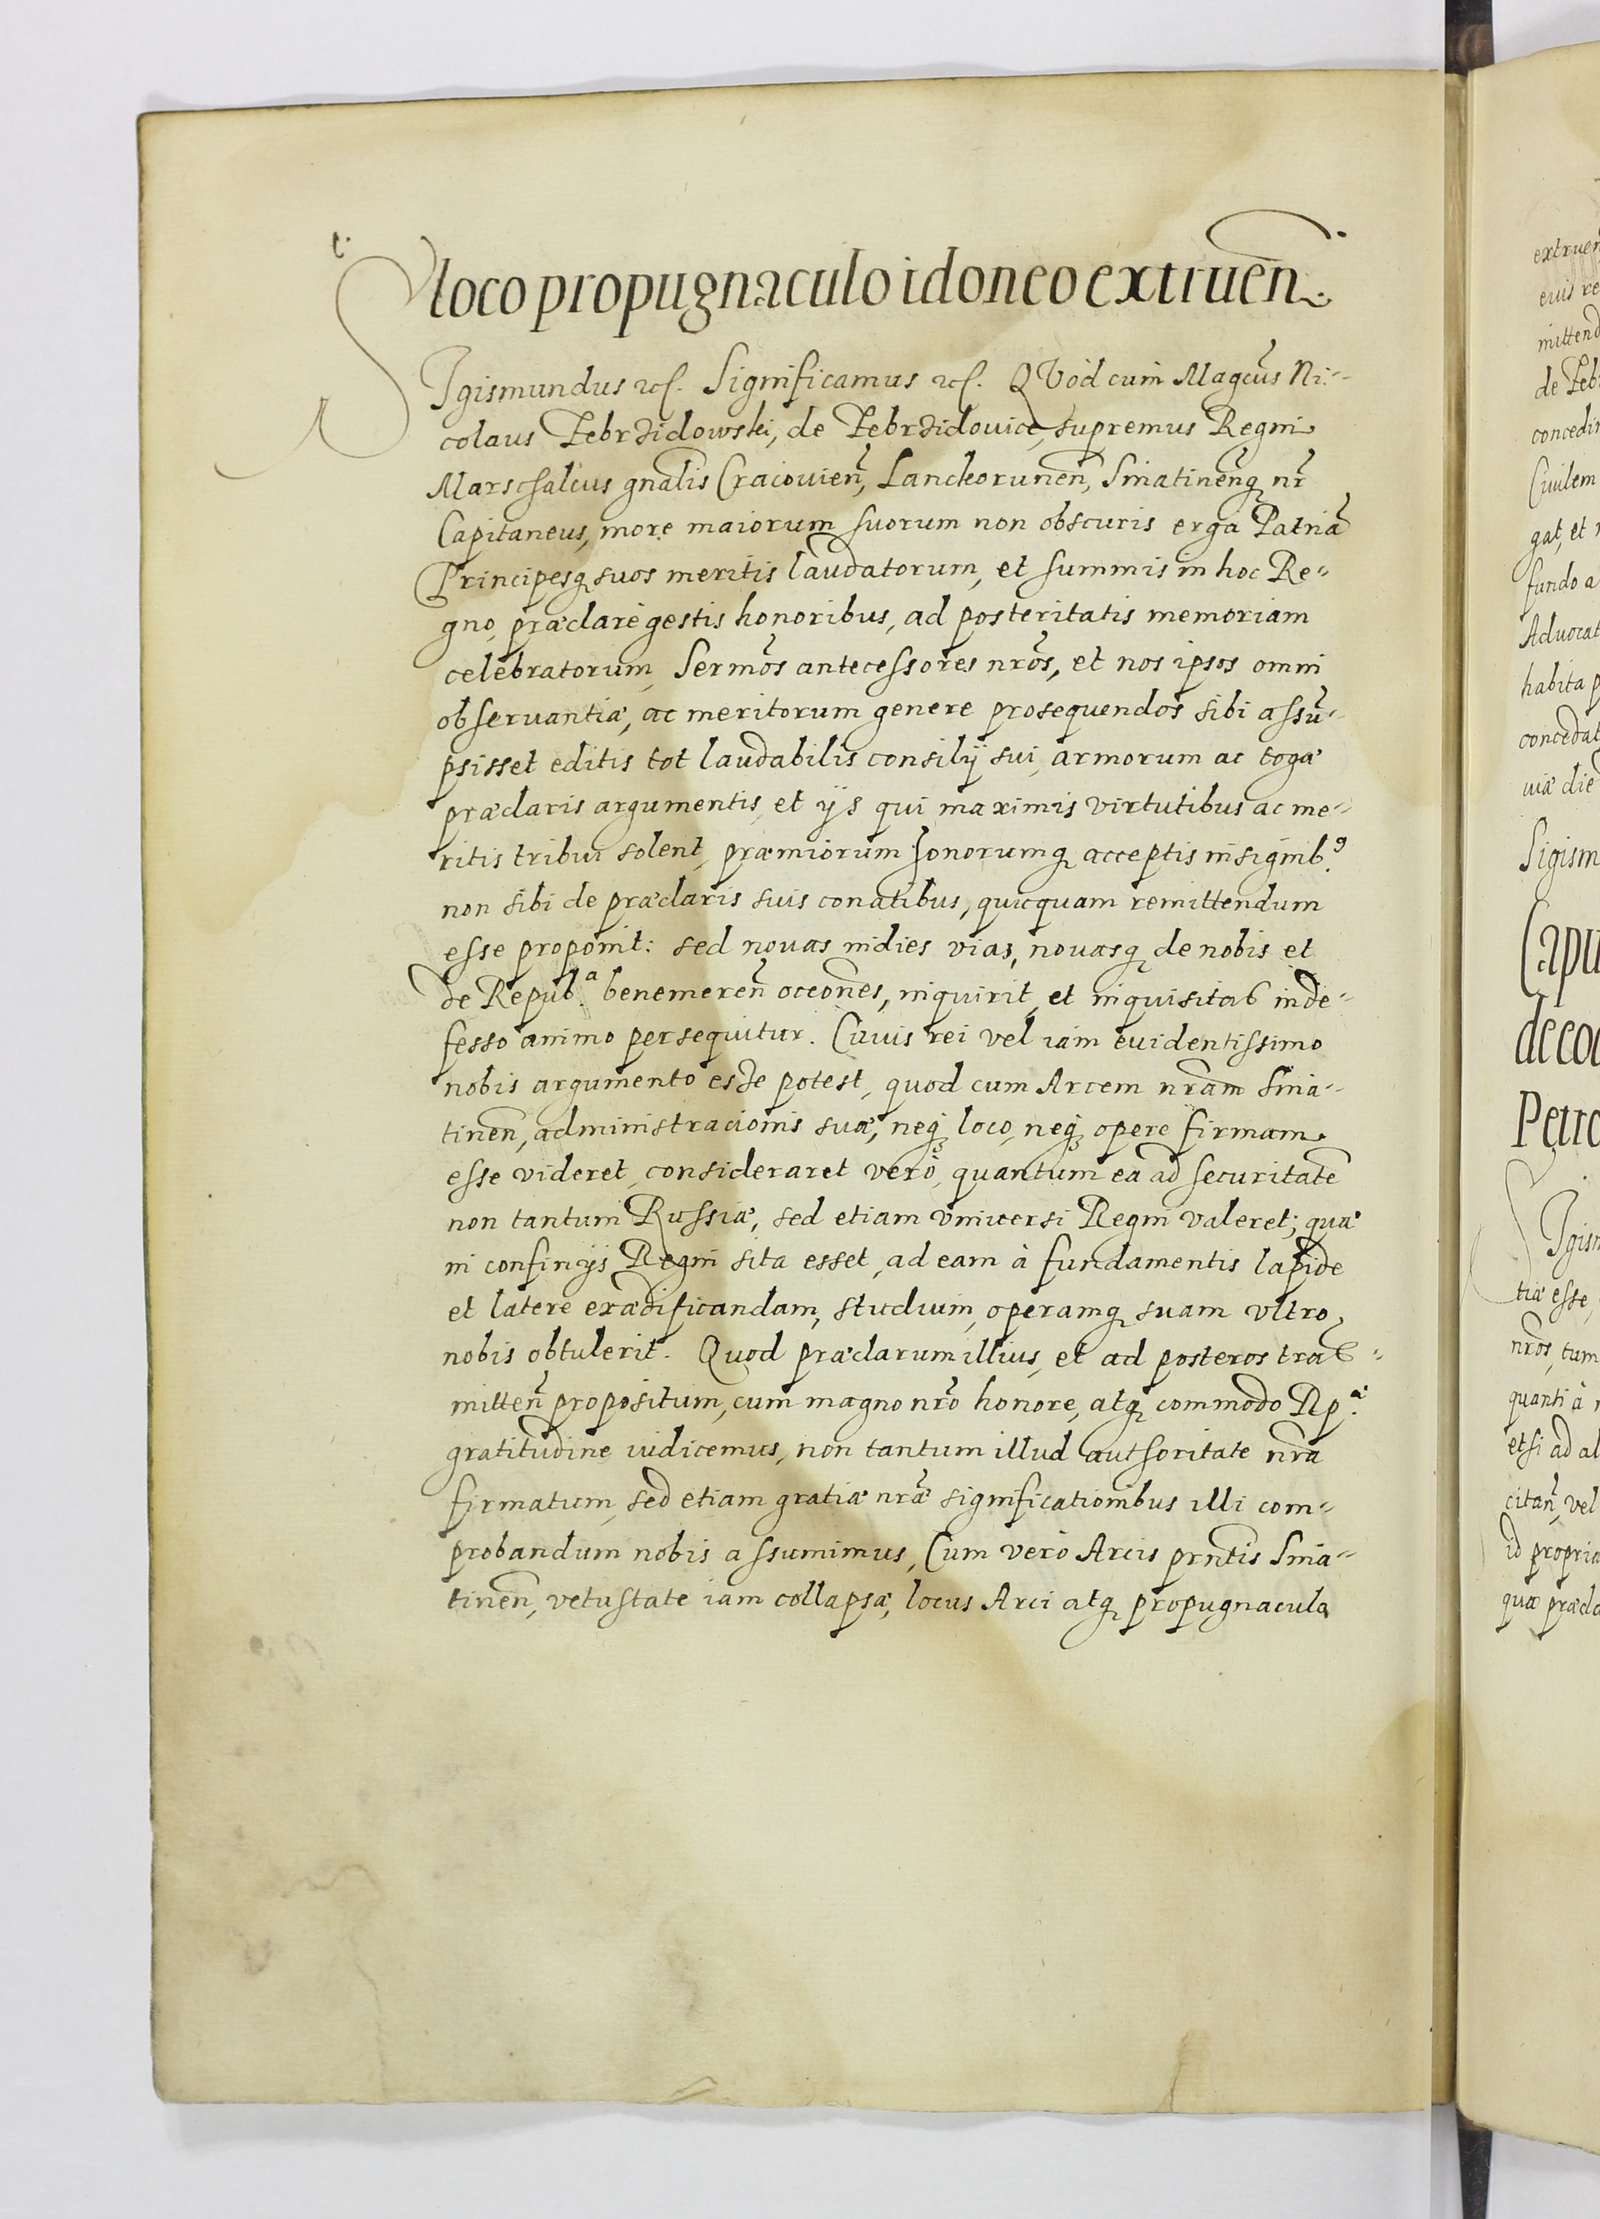 loco propugnaculo idoneo extruen̄.
Sigismundus etc. Significamus etc. QVod cum Magcūs Ni=
colaus Zebrzidowski, de Zebrzidouice, supremus Regni
Marschalcus gn̄alis Cracouien̄, Lanckorunen̄, Sniatinenq̨ nr̄
Capitaneus, more maiorum suorum non obscuris erga Patriā
Principesq̨ suos meritis laudatorum, et summis in hoc Re=
gno, præclarè gestis honoribus, ad posteritatis memoriam
celebratorum, Sermōs antecessores nr̄os, et nos ipsos omni
obseruantiæ, ac meritorum genere prosequendos sibi assū=
psisset editis tot laudabilis consilij sui, armorum ac togæ
præclaris argumentis, et ijs qui maximis virtutibus ac me=
ritis tribui solent, præmiorum honorumq̨ acceptis insignib9
non sibi de præclaris suis conatibus, quicquam remittendum
esse proponit: sed nouas indies vias, nouasq̨ de nobis et
de Repub.a benemeren̄ occōnes, inquirit, et inquisitas inde=
fesso animo persequitur. Cuius rei vel iam euidentissimo
nobis argumento esse potest, quod cum Arcem nr̄am Snia=
tinen̄, administracionis suæ, neq̨ loco, neq̨ opere firmam
esse videret, consideraret verò, quantum ea ad securitatē
non tantum Russiæ, sed etiam vniuersi Regni valeret; quæ
in confinijs Regni sita esset, ad eam à fundamentis lapide
et latere exædificandam, studium, operamq̨ suam vltro
nobis obtulerit. Quod præclarum illius, et ad posteros tras=
mitten̄ propositum, cum magno nr̄o honore, atq̨ commodo Rp.æ
gratitudine iudicemus, non tantum illud authoritate nr̄a
firmatum, sed etiam gratiæ nr̄æ significationibus illi com=
probandum nobis assumimus, Cum verò Arcis prn̄tis Snia=
tinen̄, vetustate iam collapsæ, locus Arci atq̨ propugnaculo